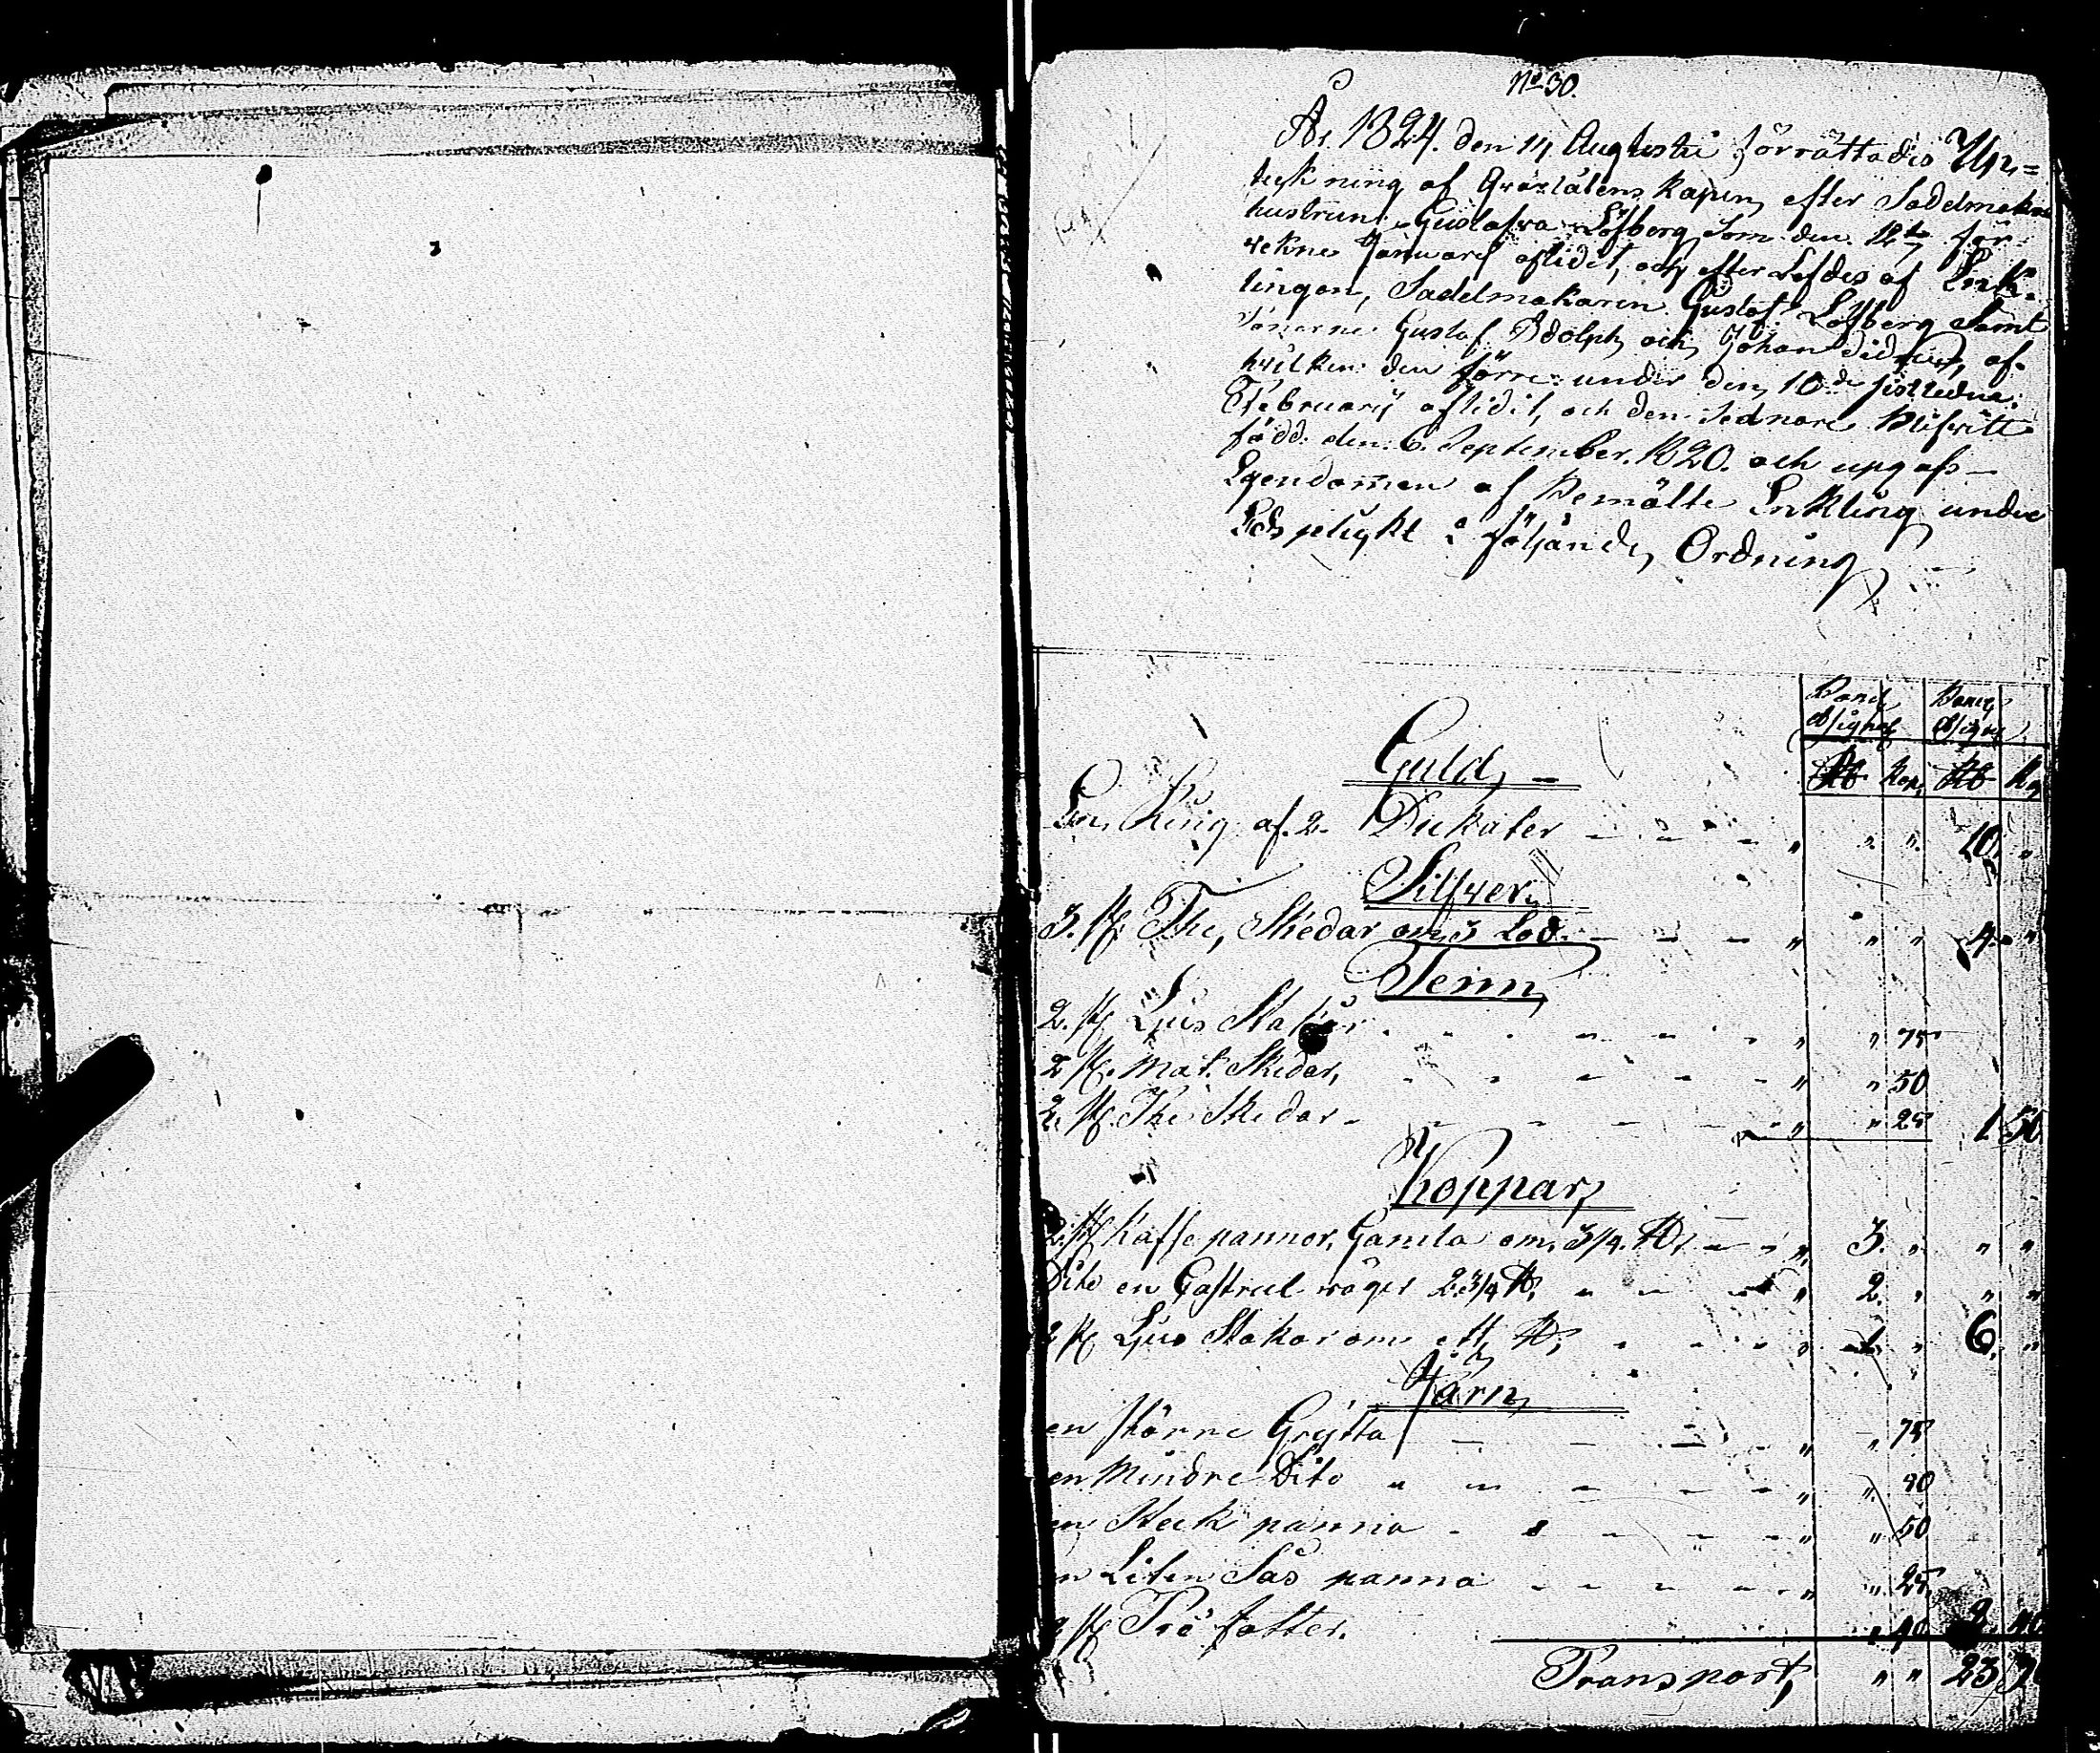 No 30.
År 1824. den 14 Augusti förrättades Up=
tekning af Qvarlåtenskapen efter Sadelmakare
hustrun Gustafva Löfberg, Som den 12te för
rekne Januarii aflidit, och efter Lefdes af Enk-
lingen, Sadelmakaren Gustaf Löfberg Samt
Sönerne Gustaf Adolph och Johan Didrich, af
hvilken den förre under den 10de sistledne
Februarii aflidit, och den Sednare Blifvitt
född den 6. September 1820. och upgafs
Egendomen af Bemälte Enkling under
Eds plight i följande Ordning
Banco Assignat Banco Assignat
Rb Kop. Rb Kop
Guld,
En Ring af 2. Dukater - - - " " " 10. "
Silfver
3. st The, Skedar om 3 Lod. - - - " " " 4. "
Tenn,
2. st Ljus Stakar . . . " " 75
2 st. Mat. Skedar, - - - " " 50
2. st. The Skedar - - - " " 25 1 50
Koppar,
2. st Kaffe pannor, Gamla om, 3/4. ℔, - - " 3. " " "
Dito en Castrul väger 2 3/4 ℔, " 2. " " "
2 st Ljus Stakar om ett, ℔, . . . " 1. " 6. "
Järn,
en störrre Grytta - - - " " 75
en Mindre Dito " - - - " " 40
en Steek panna - - - " " 50
en Liten Sås panna - - - " " 25
2 st Tré fötter. " 40 2
Transport, " " 23